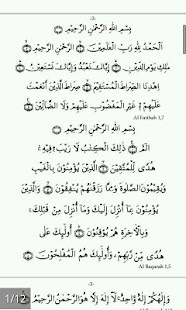 -2-
بِسْمِ اللَّهِ الرَّحْمَٰنِ الرَّحِيمِ ۝
اَلْحَمْدُ لِلَّهِ رَبِّ الْعَالَمِينَ ۝ الرَّحْمَٰنِ الرَّحِيمِ ۝
مَلِكِ يَوْمِ الدِّينِ ۝ إِيَّاكَ نَعْبُدُ وَإِيَّاكَ نَسْتَعِينُ ۝
اِهْدِنَا الصِّرَاطَ الْمُسْتَقِيمَ ۝ صِرَاطَ الَّذِينَ أَنْعَمْتَ
عَلَيْهِمْ ۝ غَيْرِ الْمَغْضُوبِ عَلَيْهِمْ وَلَا الضَّالِّينَ ۝
Al Fatihah 1,7
بِسْمِ اللَّهِ الرَّحْمَٰنِ الرَّحِيمِ ۝
الٓمٓ ۝ ذَٰلِكَ الْكِتَابُ لَا رَيْبَ فِيهِ
هُدًى لِلْمُتَّقِينَ ۝ الَّذِينَ يُؤْمِنُونَ بِالْغَيْبِ
وَيُقِيمُونَ الصَّلَوٰةَ وَمِمَّا رَزَقْنَٰهُمْ يُنْفِقُونَ ۝ وَالَّذِينَ
يُؤْمِنُونَ بِمَا أُنْزِلَ إِلَيْكَ وَمَا أُنْزِلَ مِنْ قَبْلِكَ
وَبِالْآخِرَةِ هُمْ يُوقِنُونَ ۝ أُولَٰئِكَ عَلَىٰ
هُدًى مِنْ رَبِّهِمْ وَأُولَٰئِكَ هُمُ الْمُفْلِحُونَ ۝
Al Baqarah 1,5
-3-
وَإِلَٰهُكُمْ إِلَٰهٌ وَاحِدٌ لَا إِلَٰهَ إِلَّا هُوَ الرَّحْمَٰنُ الرَّحِيمُ
1/12